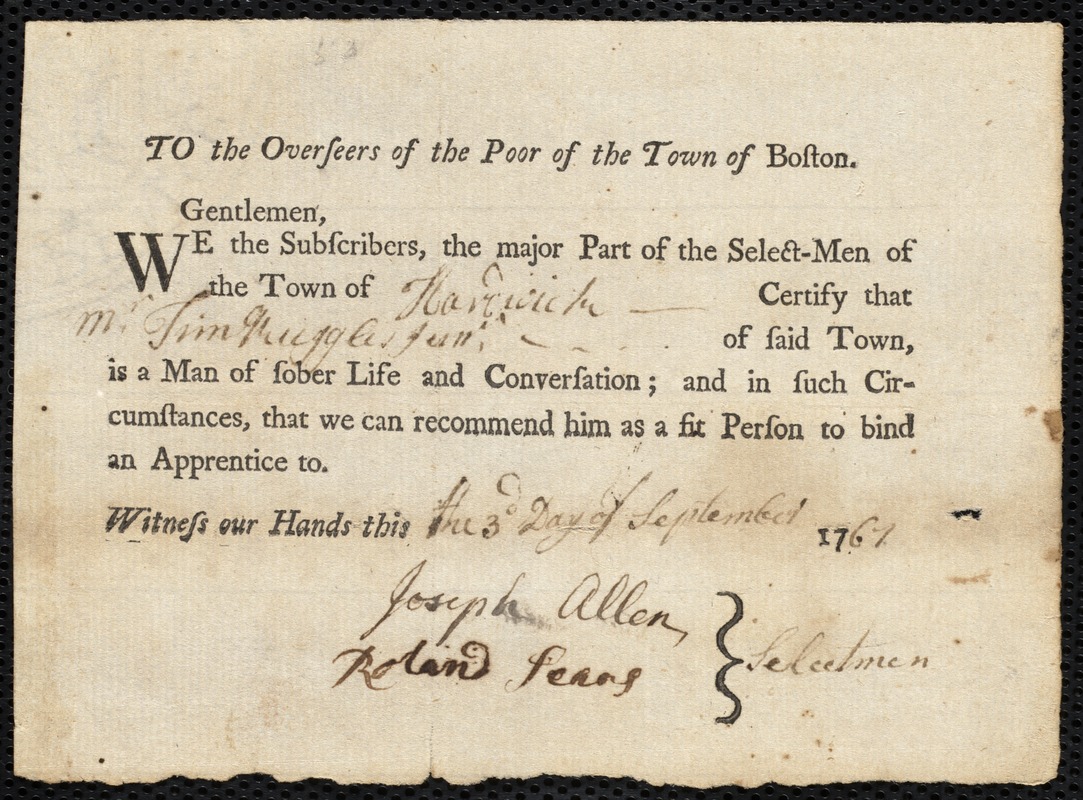 TO the Overſeers of the Poor of the Town of Boſton.
Gentlemen,
WE the Subſcribers, the major Part of the Select-Men of
the Town of Hardwick — Certify that
Mr Tim Ruggles junr. of ſaid Town,
is a Man of ſober Life and Converſation; and in ſuch Cir-
cumſtances, that we can recommend him as a fit Perſon to bind
an Apprentice to.
Witneſs our Hands this the 3d Day of September 1767
Joseph Allen,
Roland Sears
} Selectmen